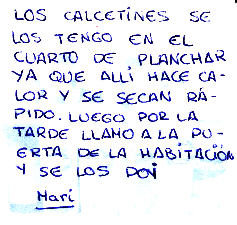 LOS CALCETINES SE
LOS TENGO EN EL
CUARTO DE PLANCHAR
YA QUE ALLI HACE CA-
LOR Y SE SECAN RÁ-
PIDO. LUEGO POR LA
TARDE LLAMO A LA PU-
ERTA DE LA HABITACIÓN
Y SE LOS DOY
Mari